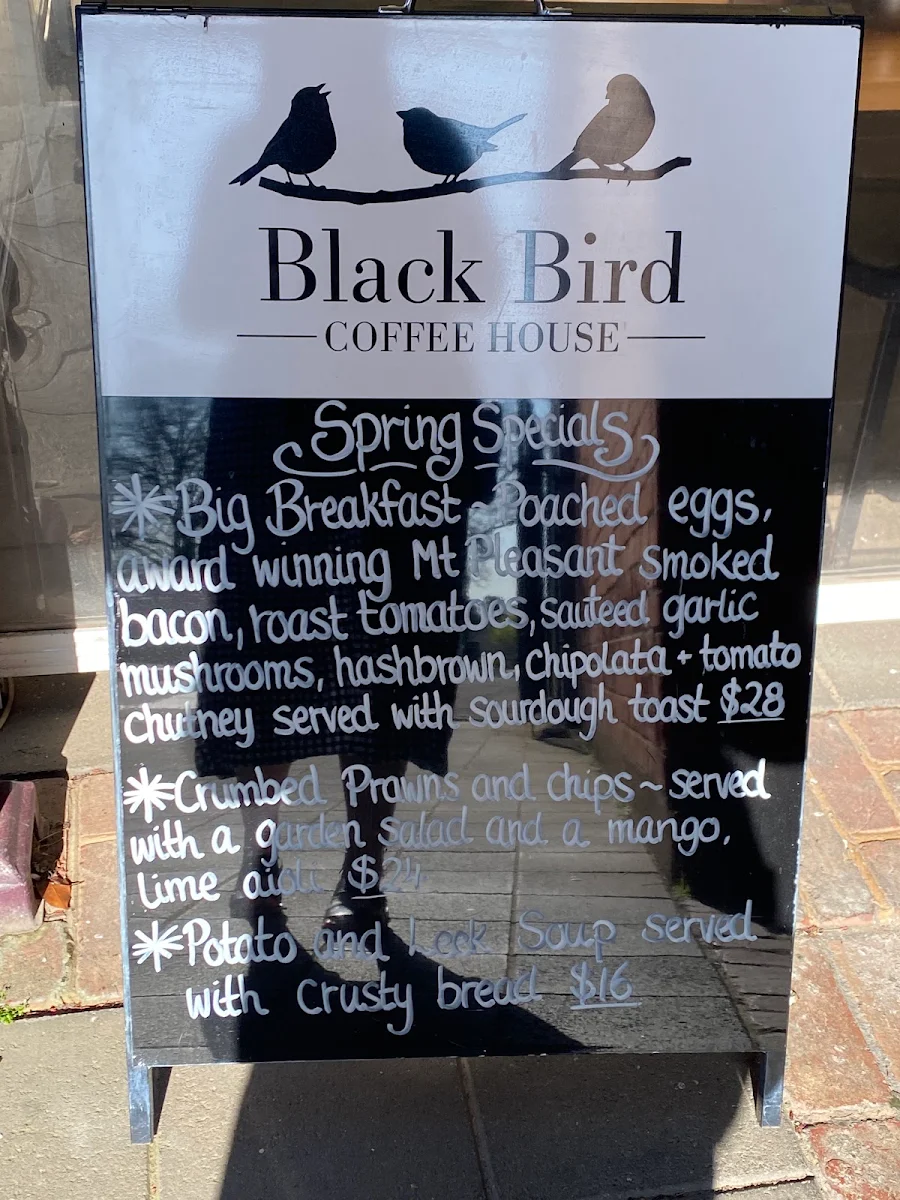 Black Bird
COFFEE HOUSE
Spring Specials
*Big Breakfast ~ Poached eggs,
award winning Mt Pleasant smoked
bacon, roast tomatoes, sauteed garlic
mushrooms, hashbrown, chipolata + tomato
chutney served with sourdough toast $28
*Crumbed Prawns and chips ~ served
with a garden salad and a mango,
lime aioli $24
*Potato and Leek Soup served
with crusty bread $16